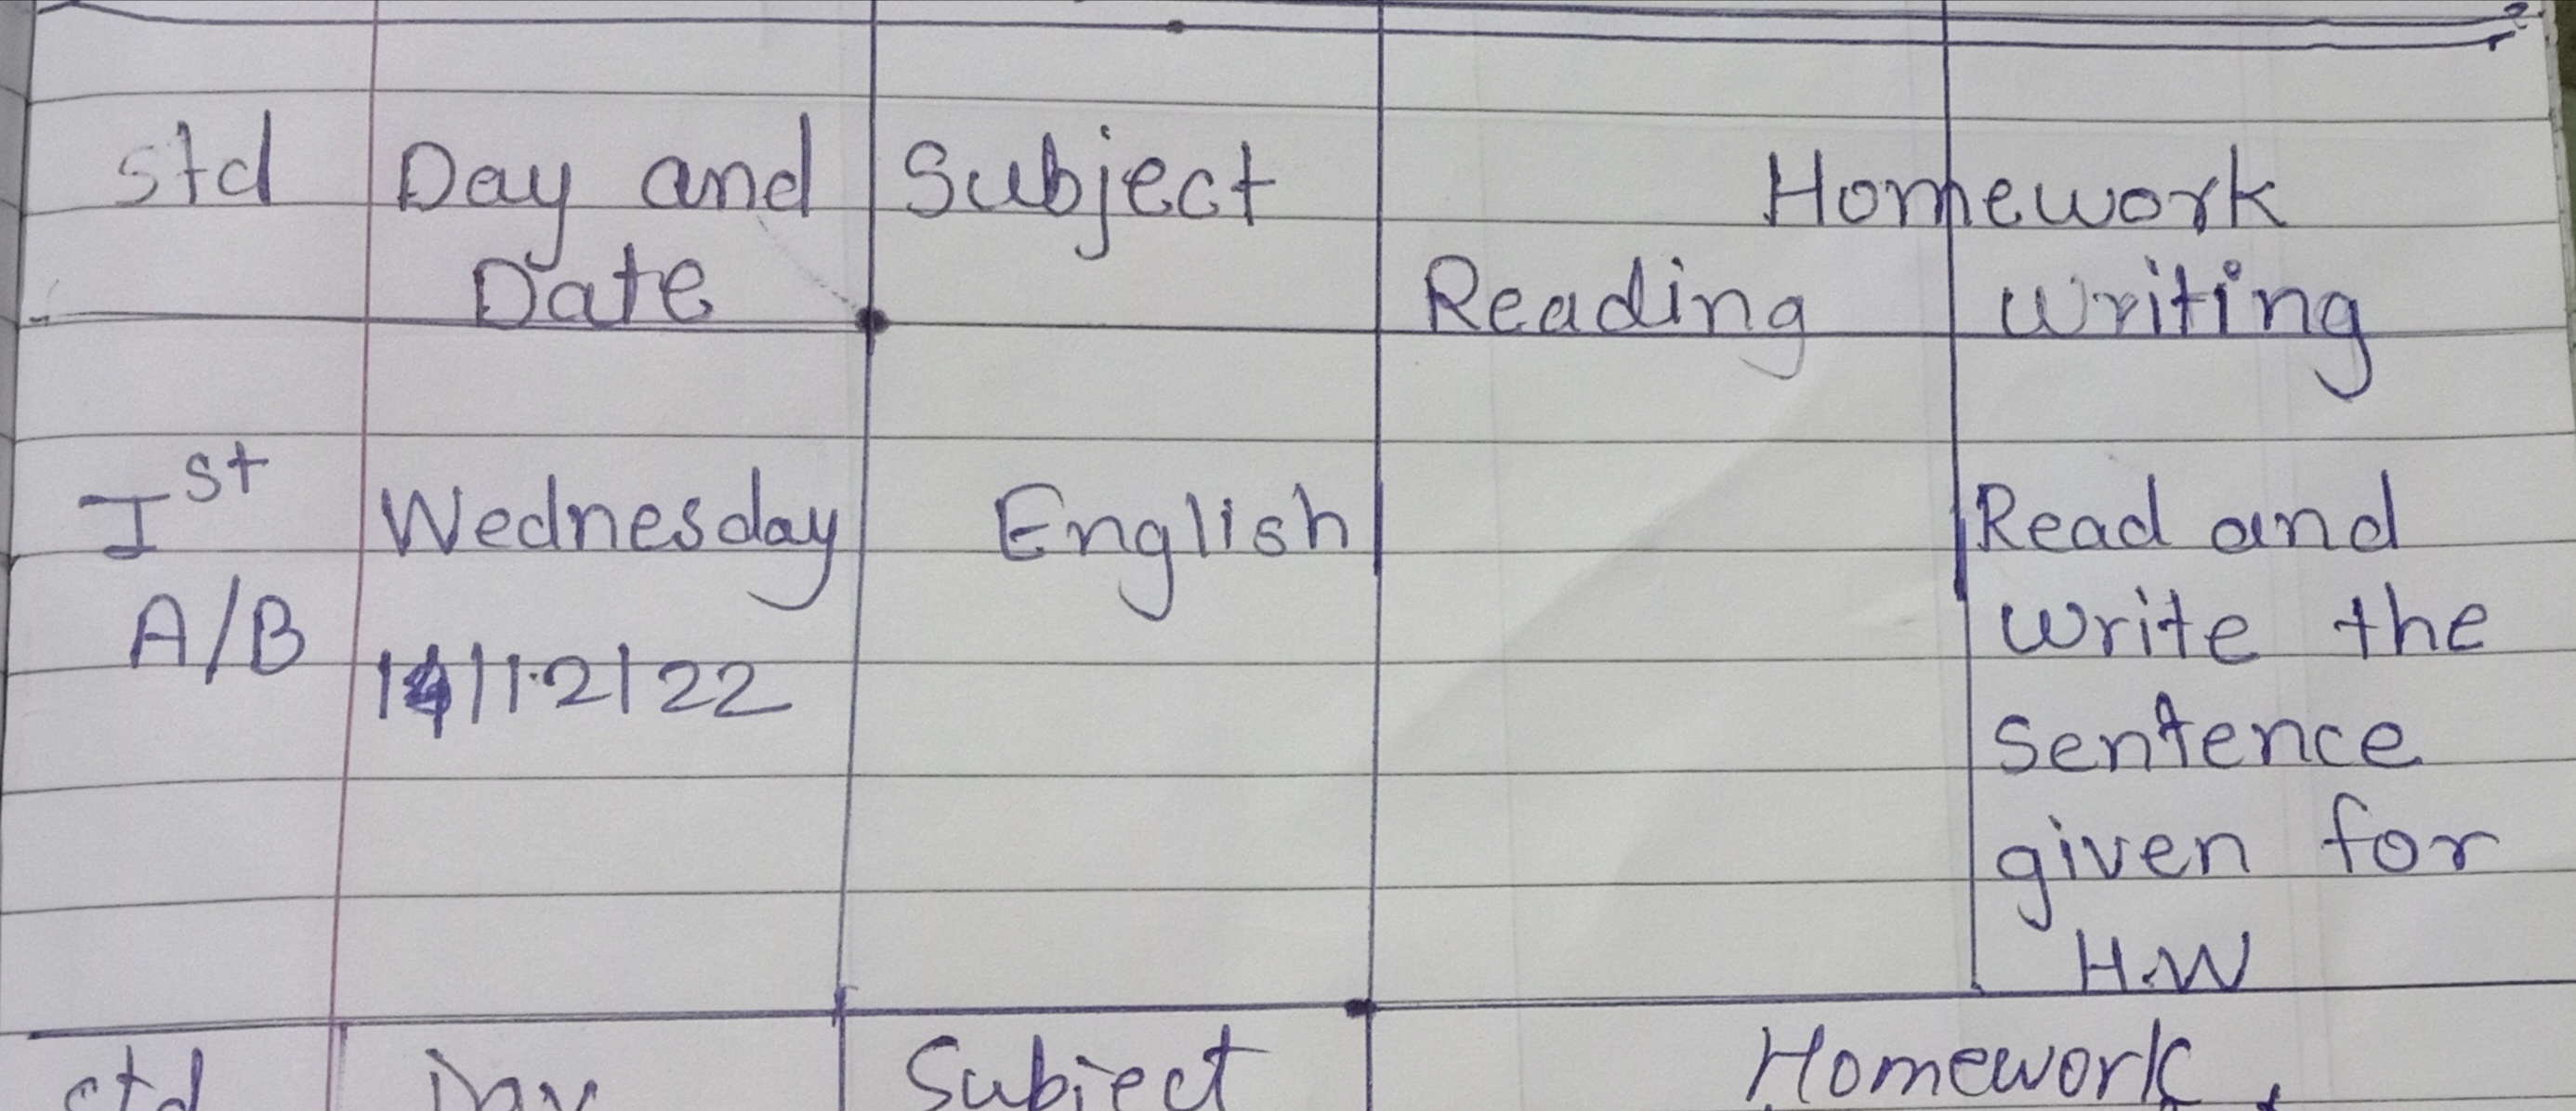 Std Day and Date Subject Homework
Reading Writing
Ist Wednesday English Read and
A/B 14/12/22 write the
sentence
given for
H.W
std Day Subject Homework